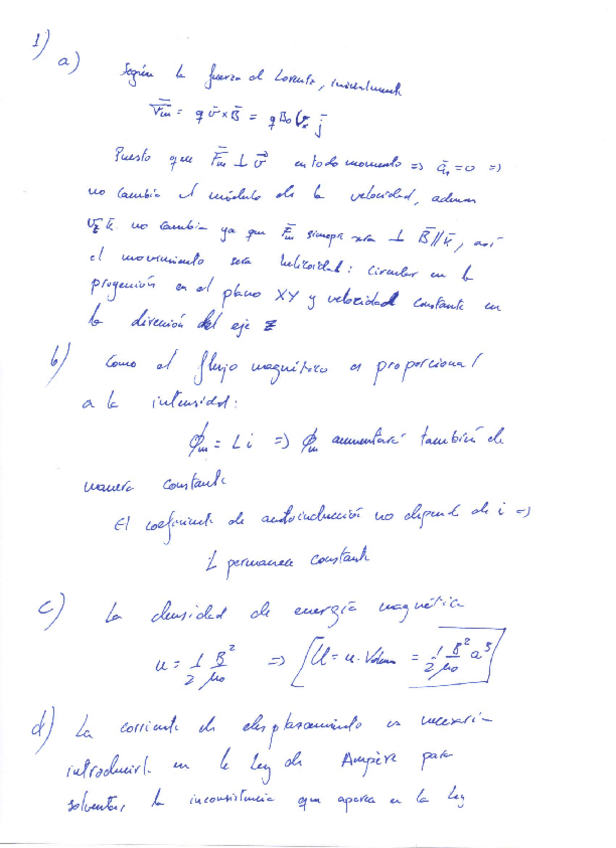 1)
a) Según la fuerza de Lorentz, inicialmente
F̄m = q v̄ × B̄ = q B₀ vx j̄
Puesto que F̄m ⊥ v̄ en todo momento => āt = 0 =>
no cambia el módulo de la velocidad, además
vz k̄ no cambia ya que F̄m siempre será ⊥ B̄ // k̄, así
el movimiento será helicoidal: circular en la
proyección en el plano XY y velocidad constante en
la dirección del eje z
b) Como el flujo magnético es proporcional
a la intensidad:
ϕm = L i => ϕm aumentará también de
manera constante
El coeficiente de autoinducción no depende de i =>
L permanece constante
c) La densidad de energía magnética
u = 1/2 B²/μ₀ => U = u · Volumen = 1/2 B²/μ₀ a³
d) La corriente de desplazamiento es necesario
introducirla en la Ley de Ampère para
solventar la inconsistencia que aparece en la Ley